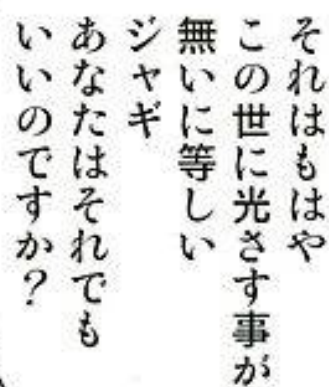 それはもはや
この世に光さす事が
無いに等しい
ジャギ
あなたはそれでも
いいのですか？